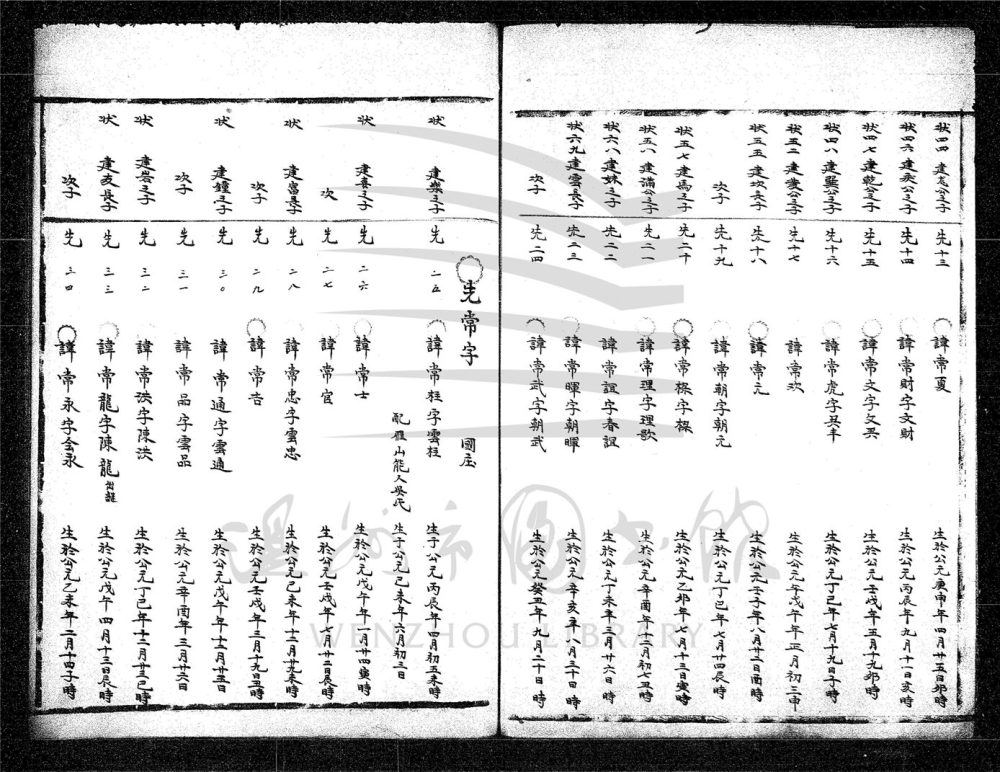 狀四四 建志公之子 先十三 諱常夏 生於公元庚申年四月廿五日卯時
狀四六 建癸公之子 先十四 諱常財字文財 生於公元丙辰年九月十一日亥時
狀四七 建乾公之子 先十五 諱常文字文昊 生於公元壬戌年五月十九卯時
狀四八 建 公之子 先十六 諱常虎字英丰 生於公元丁巳年七月十九日子時
狀五二 建 公之子 先十七 諱常欢 生於公元午戊午年正月初三申
狀五五 建坎長子 先十八 諱常元 生於公元壬子年八月廿二日酉時
次子 先十九 諱常朝字朝元 生於公元丁巳年七月廿四辰時
狀五七 建馬之子 先二十 諱常樑字樑 生於公元乙卯年七月十三日寅時
狀五八 建滿公之子 先二一 諱常理字理歌 生於公元辛酉年十二月初七丑時
狀六八 建妹之子 先二二 諱常誼字春誼 生於公元丁未年三月廿六日 時
狀六九 建雲長子 先二三 諱常暉字朝暉 生於公元辛亥年八月三十日 時
次子 先二四 諱常武字朝武 生於公元癸丑年九月二十日 時
先常字 國庄
狀 建崇之子 先 二五 諱常柱字雲柱 生于公元丙辰年四月初五未時
配雁山能人吳氏 生于公元己未年六月初三日
狀 建壽之子 先 二六 諱常士 生於公元戊午年一月廿四寅時
次 二七 諱常官 生於公元壬戌年七月廿二日辰時
狀 建富長子 先 二八 諱常忠字雲忠 生於公元己未年十二月廿九未時
次子 先 二九 諱常吉 生於公元壬戌年三月十九日丑時
狀 建鐘之子 先 三〇 諱常通字雲通 生於公元戊午年十二月廿五日
次子 先 三一 諱常品字雲品 生於公元辛酉年三月廿六日
狀 建岩之子 先 三二 諱常洪字陳洪 生於公元丁巳年十二月廿三巳時
狀 建友長子 先 三三 諱常龍字陳龍 生於公元戊午四月十三日辰時
次子 先 三四 諱常永字金永 生於公元乙未年二月十四子時
溫州市圖書館
WENZHOU LIBRARY